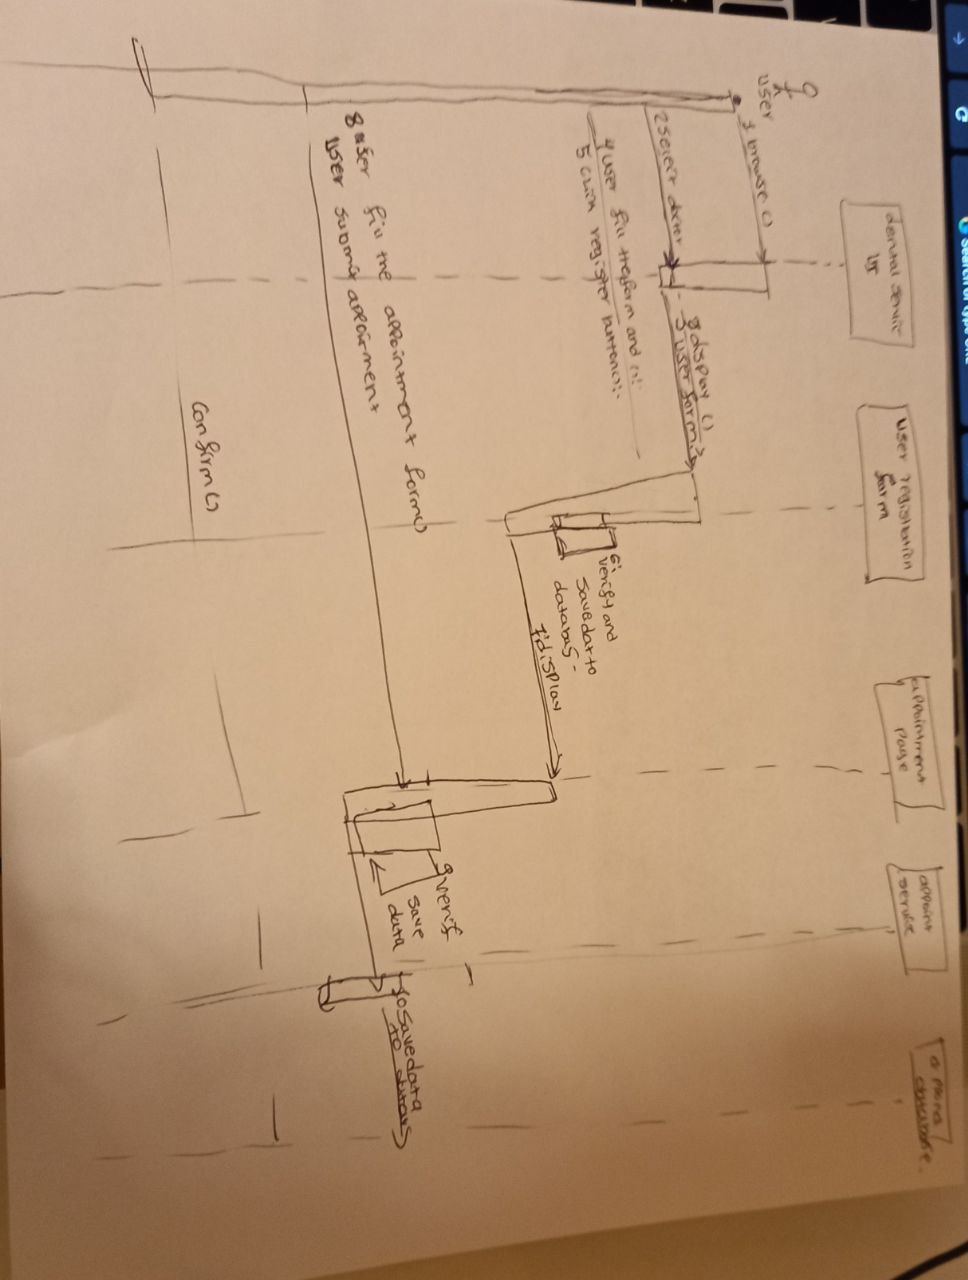 user
dental service
UI
user registration
form
appointment
page
appoint
service
1 browse ()
2 select doctor
display ()
3 user form
4 user fill the form and
5 click register button
6: verify and
save dat to
databas-
7: display
8 user fill the appointment form()
user submit appoirment
9 verif
save
data
10 save data
to
confirm()